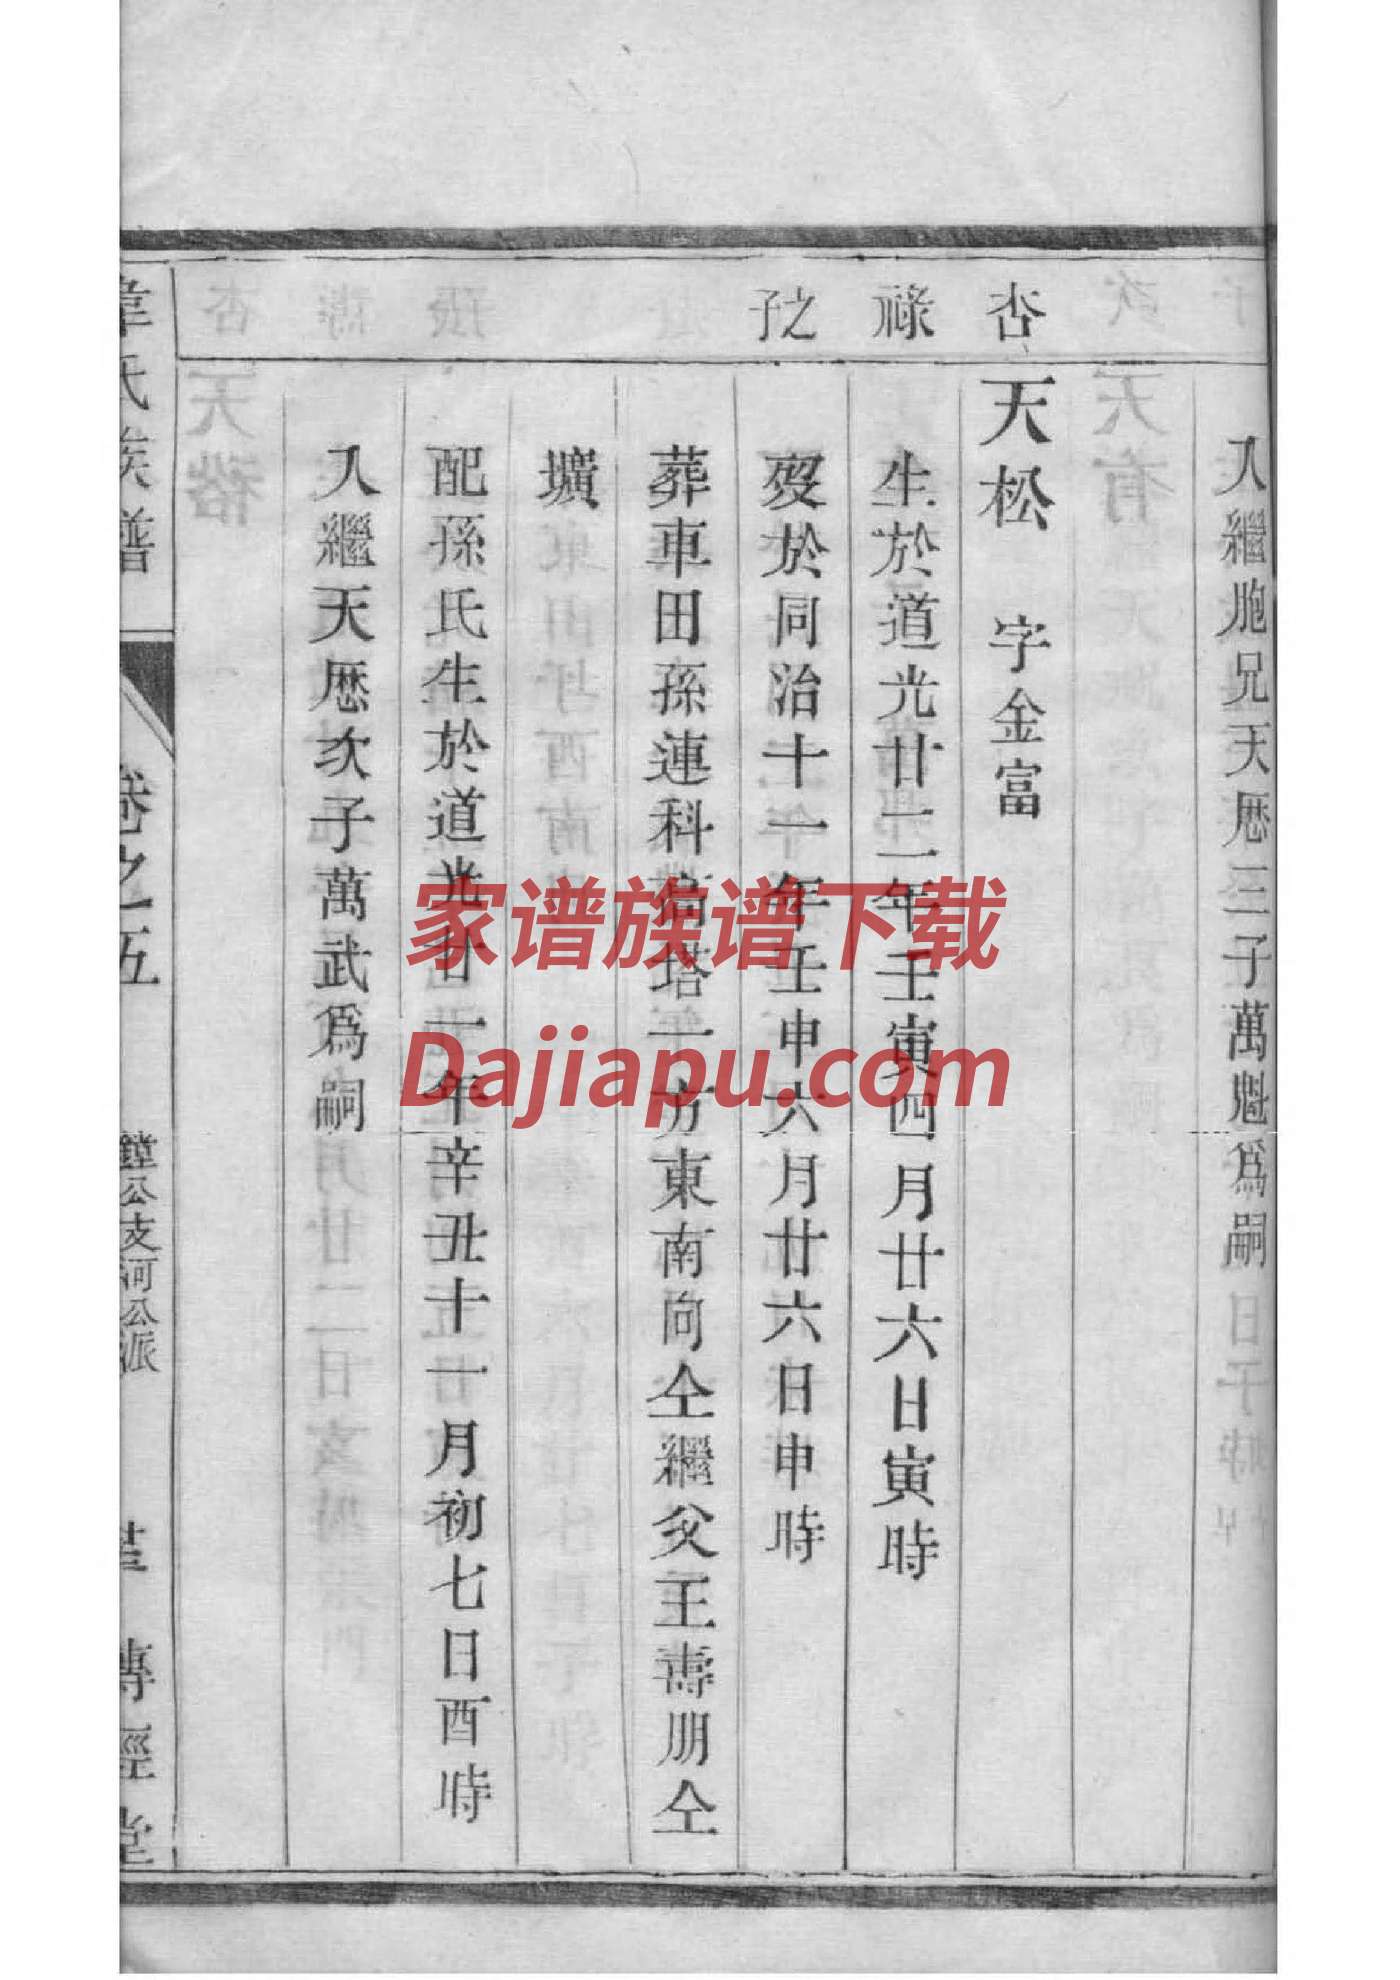 入繼胞兄天厯三子萬魁爲嗣
杏
天松 字金富
祿
生於道光廿二年壬寅四月廿六日寅時
之子
歿於同治十一年壬申六月廿六日申時
葬車田孫連科窑塔一方東南向仝繼父王壽朋仝
壙
配孫氏生於道光廿一年辛丑十一月初七日酉時
入繼天厯次子萬武爲嗣
韋氏族譜
卷之五
鏜公支河公派
傳經堂
家谱族谱下载
Dajiapu.com